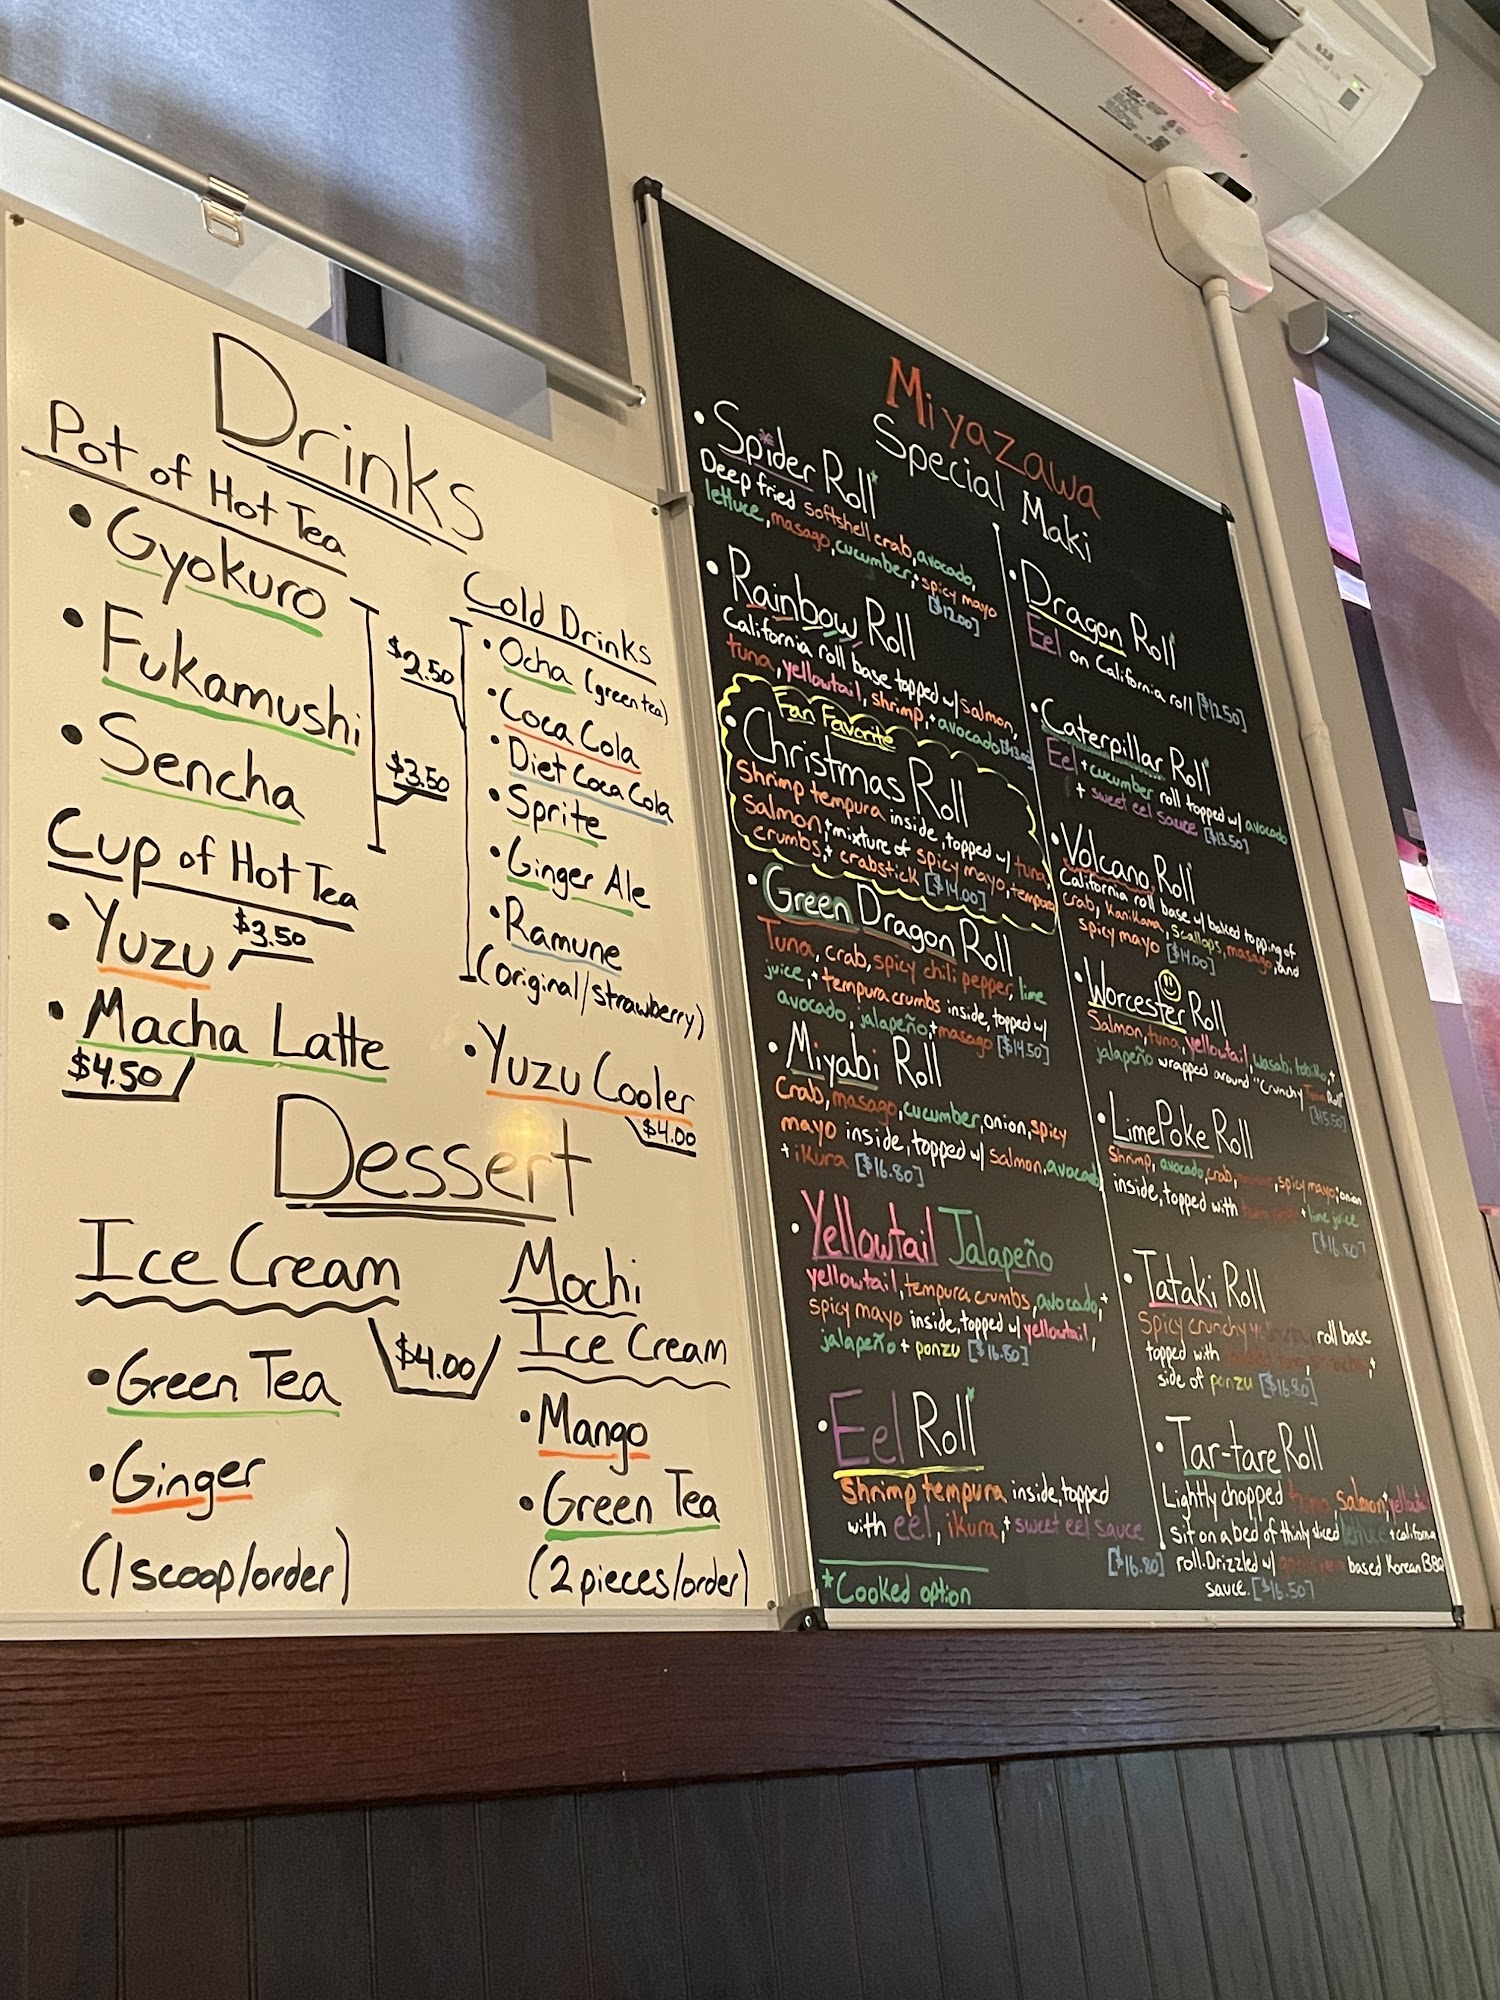 Drinks
Pot of Hot Tea
• Gyokuro
• Fukamushi
• Sencha
$3.50
Cup of Hot Tea
• Yuzu $3.50
• Macha Latte
$4.50
Cold Drinks
$2.50
• Ocha (green tea)
• Coca Cola
• Diet Coca Cola
• Sprite
• Ginger Ale
• Ramune
(original/strawberry)
• Yuzu Cooler
$4.00
Dessert
Ice Cream
$4.00
• Green Tea
• Ginger
(1 scoop/order)
Mochi
Ice Cream
• Mango
• Green Tea
(2 pieces/order)
Miyazawa
Special Maki
• Spider Roll*
Deep fried softshell crab, avocado,
lettuce, masago, cucumber, + spicy mayo
[$12.00]
• Rainbow Roll
California roll base topped w/ Salmon,
tuna, yellowtail, shrimp, + avocado
Fan Favorite
• Christmas Roll
Shrimp tempura inside, topped w/ tuna,
Salmon + mixture of spicy mayo, tempura
crumbs, + crabstick [$14.00]
• Green Dragon Roll
Tuna, crab, spicy chili pepper, lime
juice, + tempura crumbs inside, topped w/
avocado, jalapeño, + masago [$14.50]
• Miyabi Roll
Crab, masago, cucumber, onion, spicy
mayo inside, topped w/ salmon, avocado
+ ikura [$16.80]
• Yellowtail Jalapeño
yellowtail, tempura crumbs, avocado, +
spicy mayo inside, topped w/ yellowtail,
jalapeño + ponzu [$16.80]
• Eel Roll*
Shrimp tempura inside, topped
with eel, ikura, + sweet eel sauce
[$16.80]
*Cooked option
• Dragon Roll*
Eel on California roll [$12.50]
• Caterpillar Roll*
Eel + cucumber roll topped w/ avocado
+ sweet eel sauce [$13.50]
• Volcano Roll*
California roll base w/ baked topping of
crab, Kanikama, scallops, masago, and
spicy mayo [$14.00]
• Worcester Roll
Salmon, tuna, yellowtail, wasabi tobiko, +
jalapeño wrapped around "Crunchy Tuna Roll"
[$15.50]
• Lime Poke Roll
Shrimp, avocado, crab, spicy mayo, onion
inside, topped with + lime juice
[$16.80]
• Tataki Roll
Spicy crunchy roll base
topped with +
side of ponzu [$16.80]
• Tar-tare Roll
Lightly chopped tuna, Salmon, + yellowtail
sit on a bed of thinly sliced lettuce + california
roll. Drizzled w/ based Korean BBQ
sauce. [$16.50]